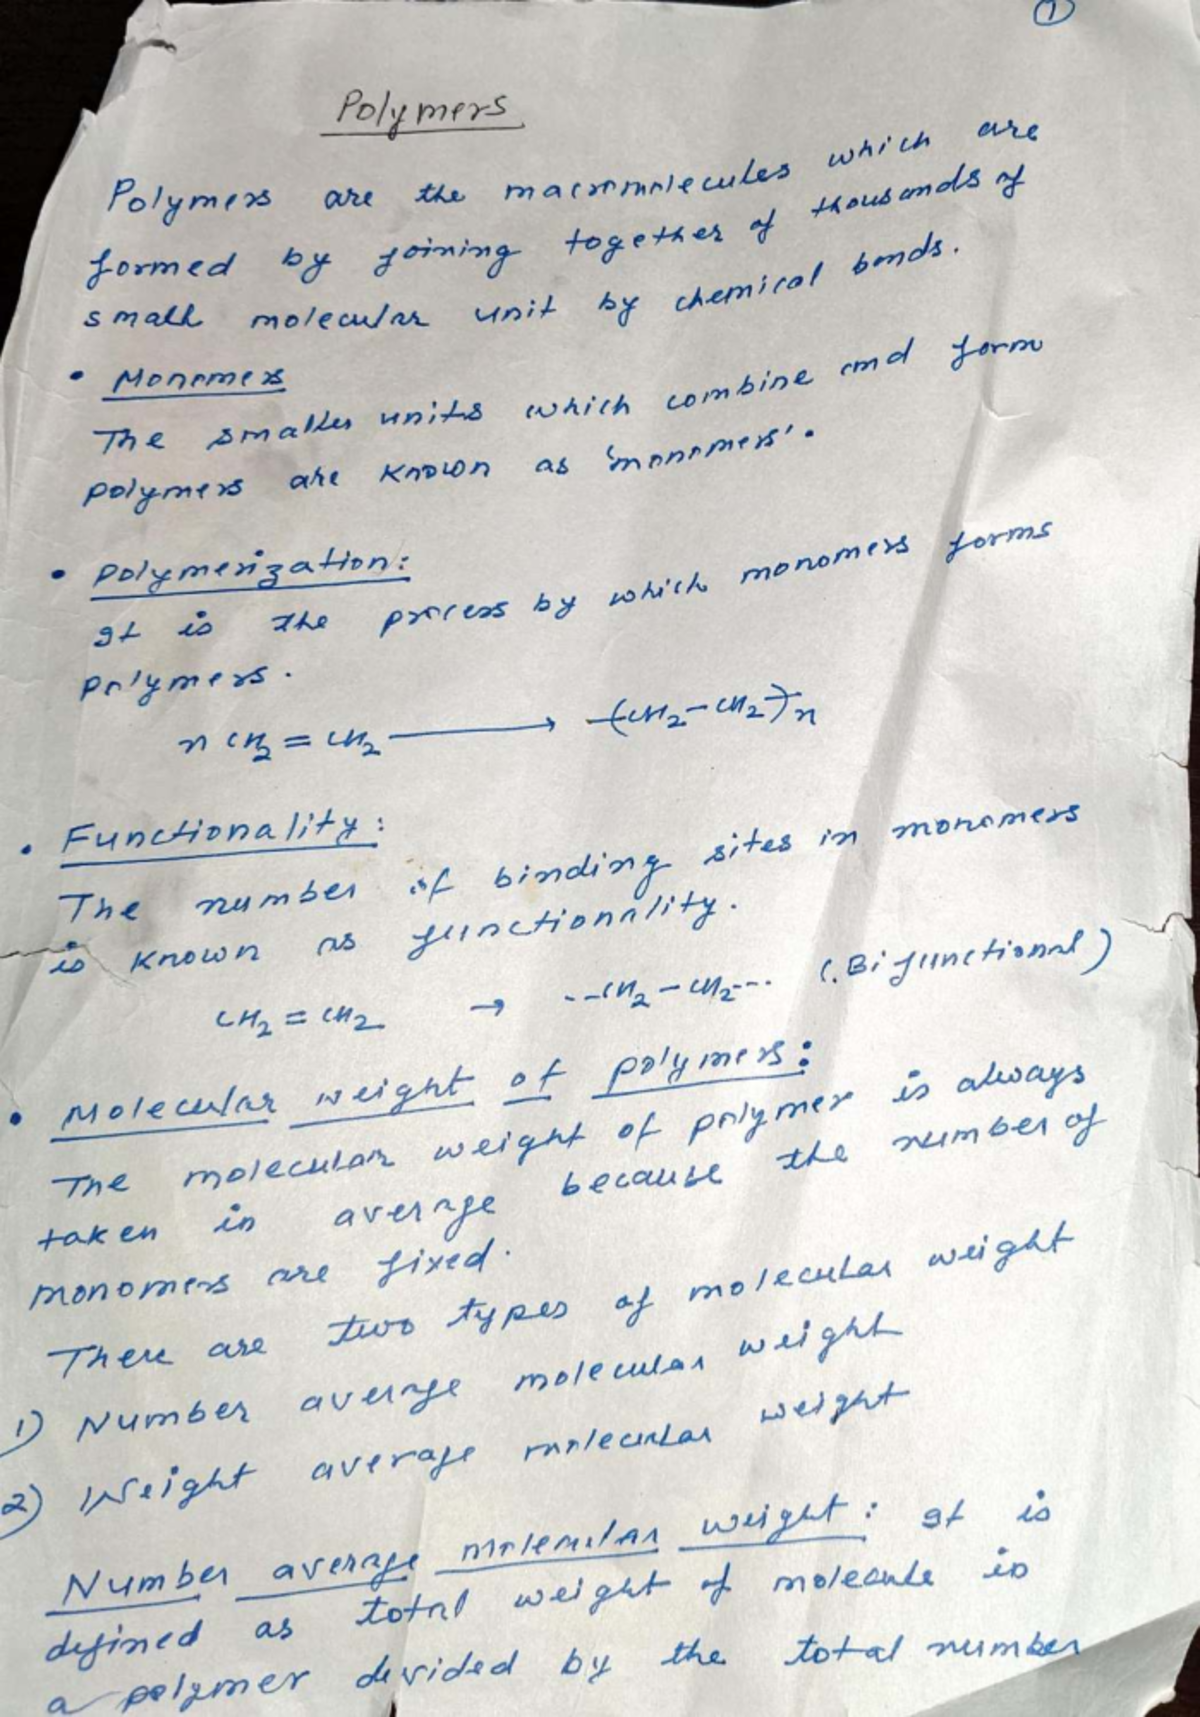 1
Polymers
Polymers are the macromolecules which are
formed by joining together of thousands of
small molecular unit by chemical bonds.
• Monomers
The smaller units which combine and form
polymers are known as 'monomers'.
• Polymerization:
It is the process by which monomers forms
polymers.
n CH2 = CH2 ⟶ -(CH2-CH2)-n
• Functionality:
The number of binding sites in monomers
is known as functionality.
CH2 = CH2 → ---CH2-CH2--- (Bifunctional)
• Molecular weight of polymers:
The molecular weight of polymer is always
taken in average because the number of
monomers are fixed.
There are two types of molecular weight
1) Number average molecular weight
2) Weight average molecular weight
Number average molecular weight: It is
defined as total weight of molecule in
a polymer devided by the total number